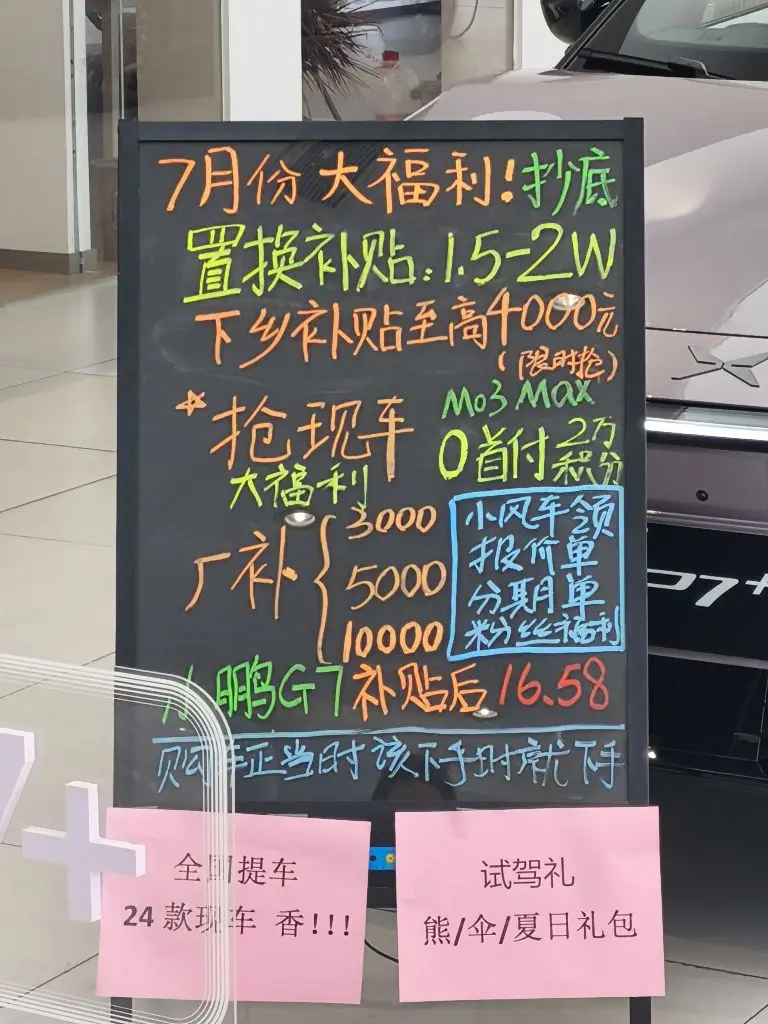 7月份大福利!抄底
置换补贴:1.5-2W
下乡补贴至高4000元
(限时抢)
抢现车
大福利
M03 Max
0首付 2万积分
厂补
3000
5000
10000
小风车领
报价单
分期单
粉丝福利
小鹏G7补贴后16.58
购车正当时该下手时就下手
全国提车
24款现车 香!!!
试驾礼
熊/伞/夏日礼包
P7+
7+